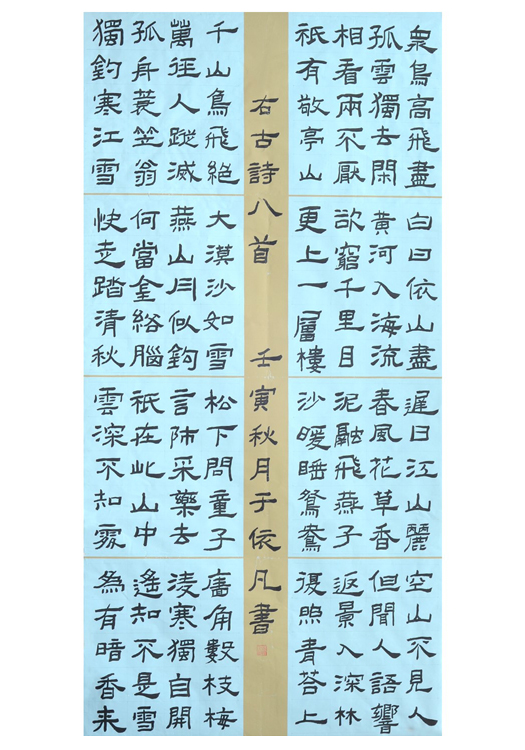 衆鳥高飛盡
孤雲獨去閑
相看兩不厭
祇有敬亭山
白日依山盡
黃河入海流
欲窮千里目
更上一層樓
遲日江山麗
春風花草香
泥融飛燕子
沙暖睡鴛鴦
空山不見人
但聞人語響
返景入深林
復照青苔上
千山鳥飛絕
萬徑人蹤滅
孤舟蓑笠翁
獨釣寒江雪
大漠沙如雪
燕山月似鉤
何當金絡腦
快走踏清秋
松下問童子
言師采藥去
祇在此山中
雲深不知處
墻角數枝梅
凌寒獨自開
遙知不是雪
為有暗香来
右古詩八首 壬寅秋月于依凡書